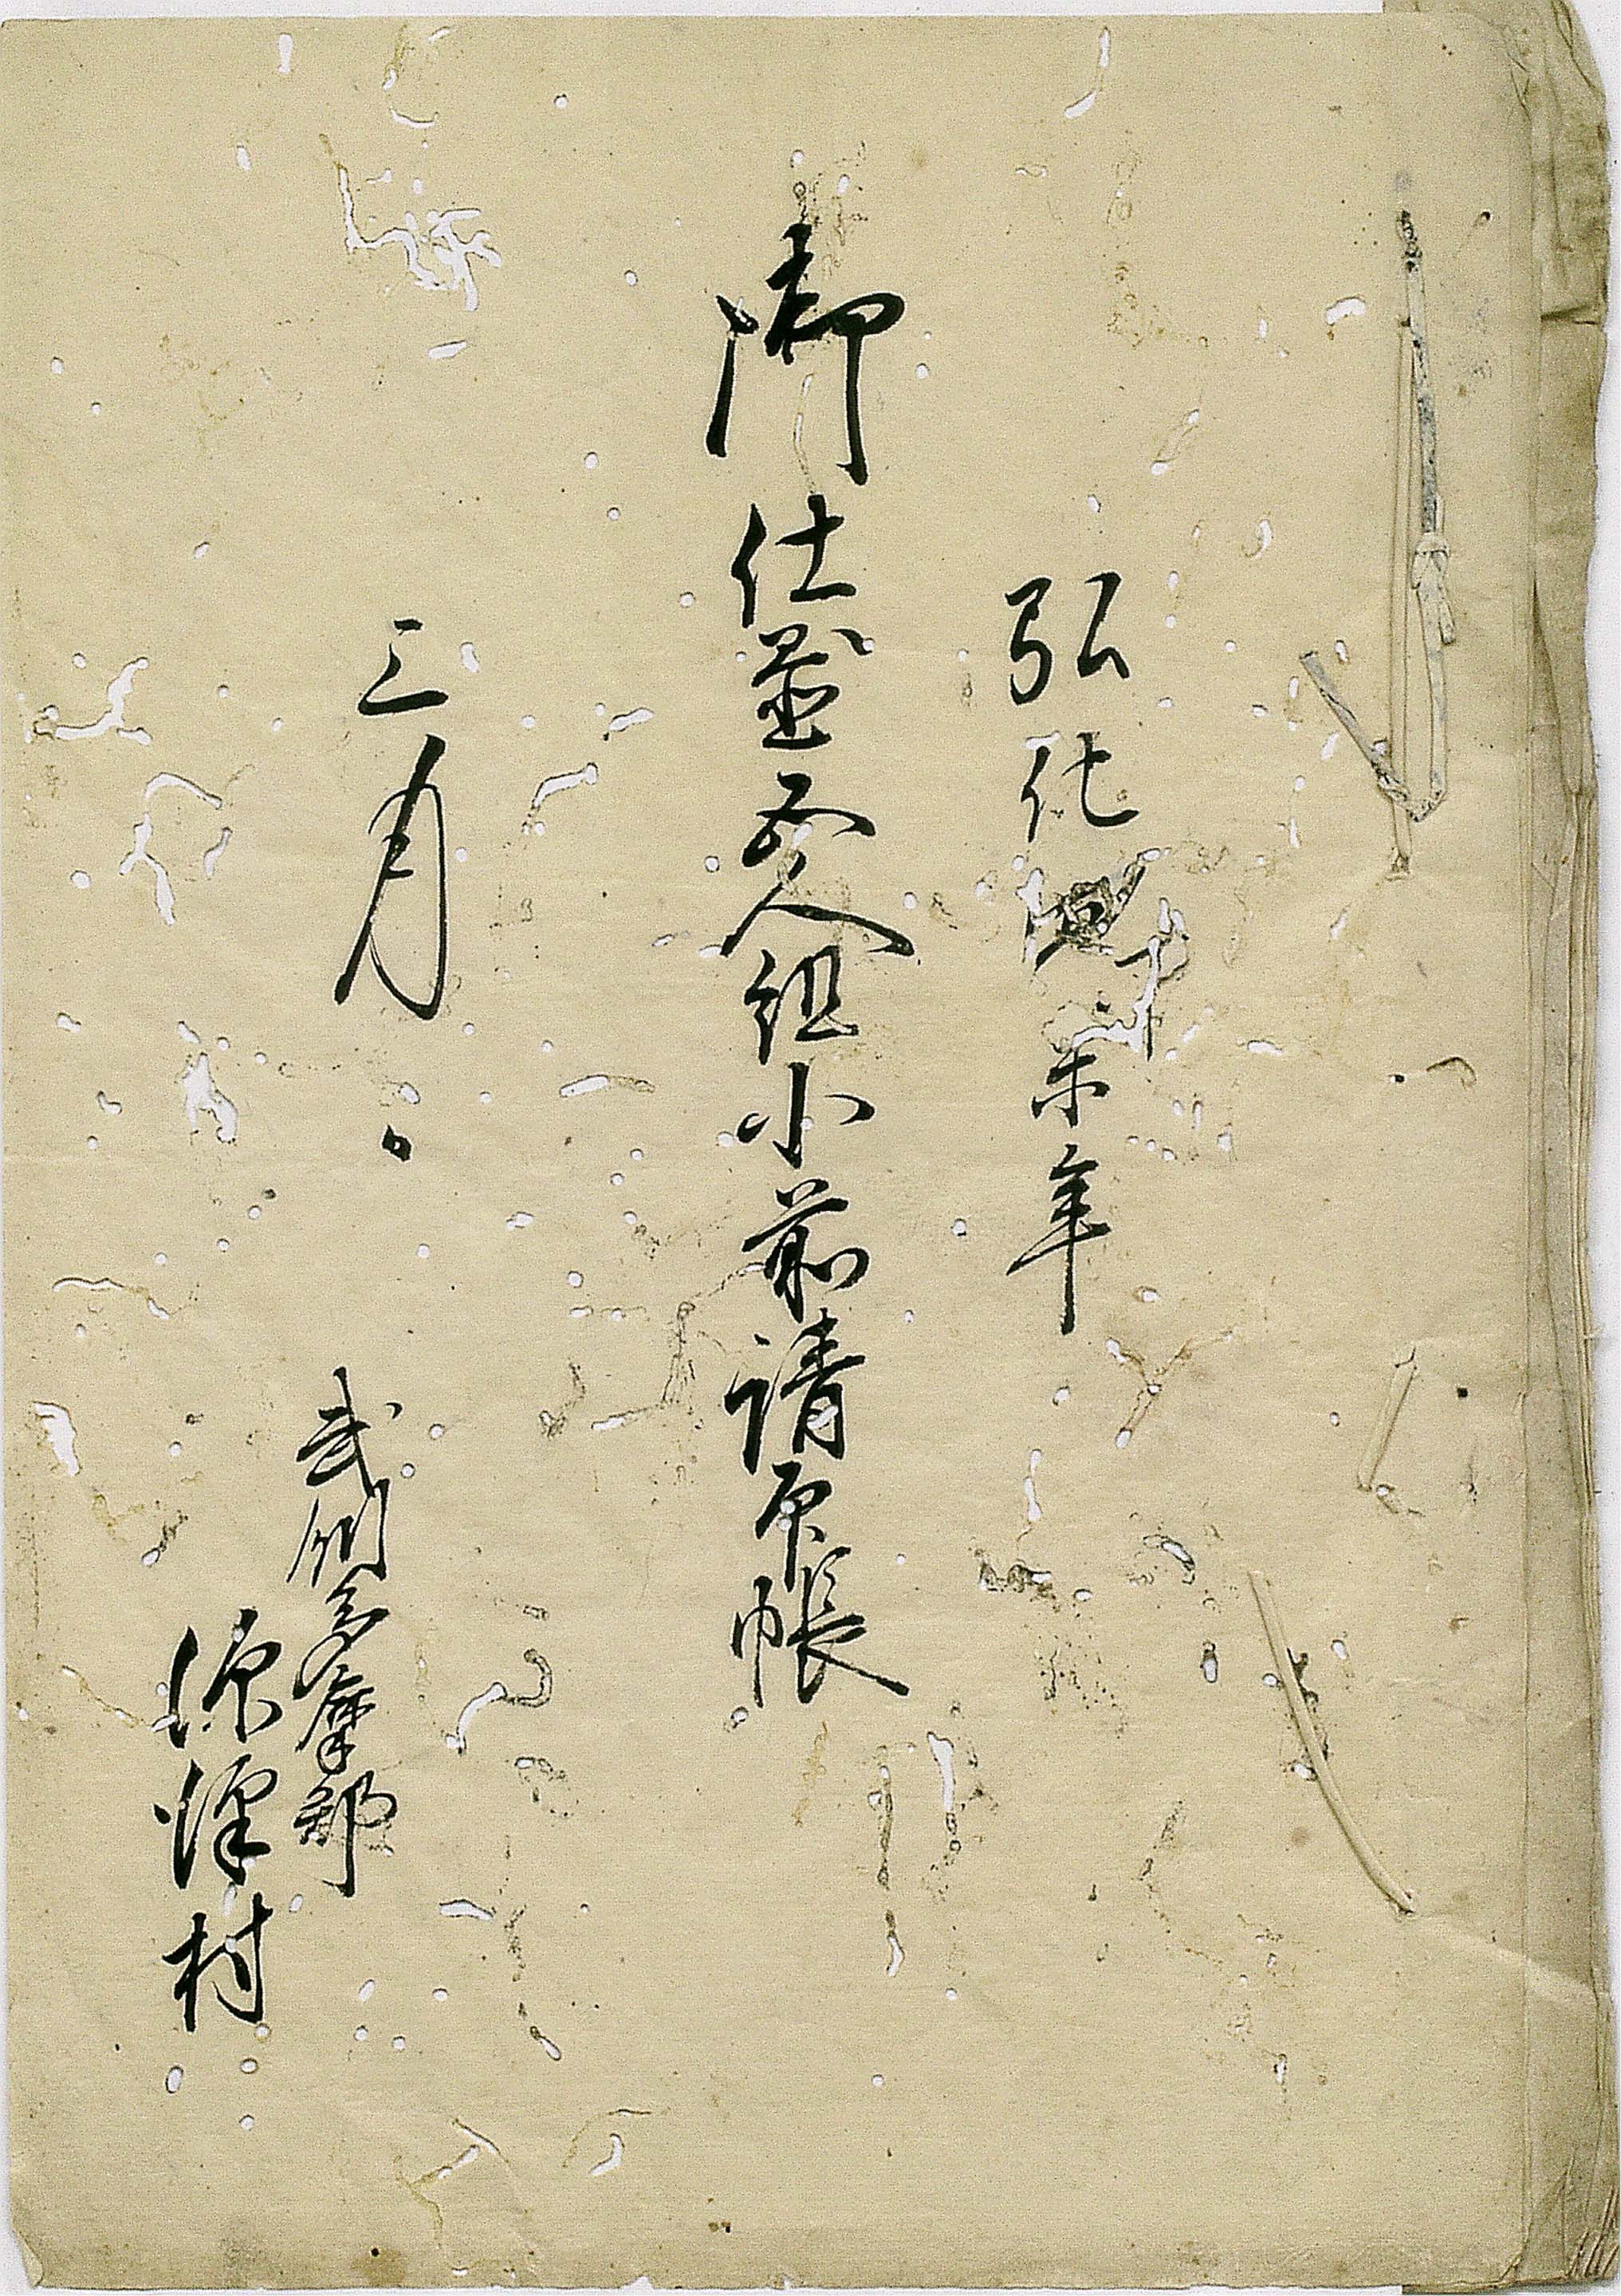 弘化四丁未年
御仕置五人組小前請印帳
三月
武州多摩郡
深澤村